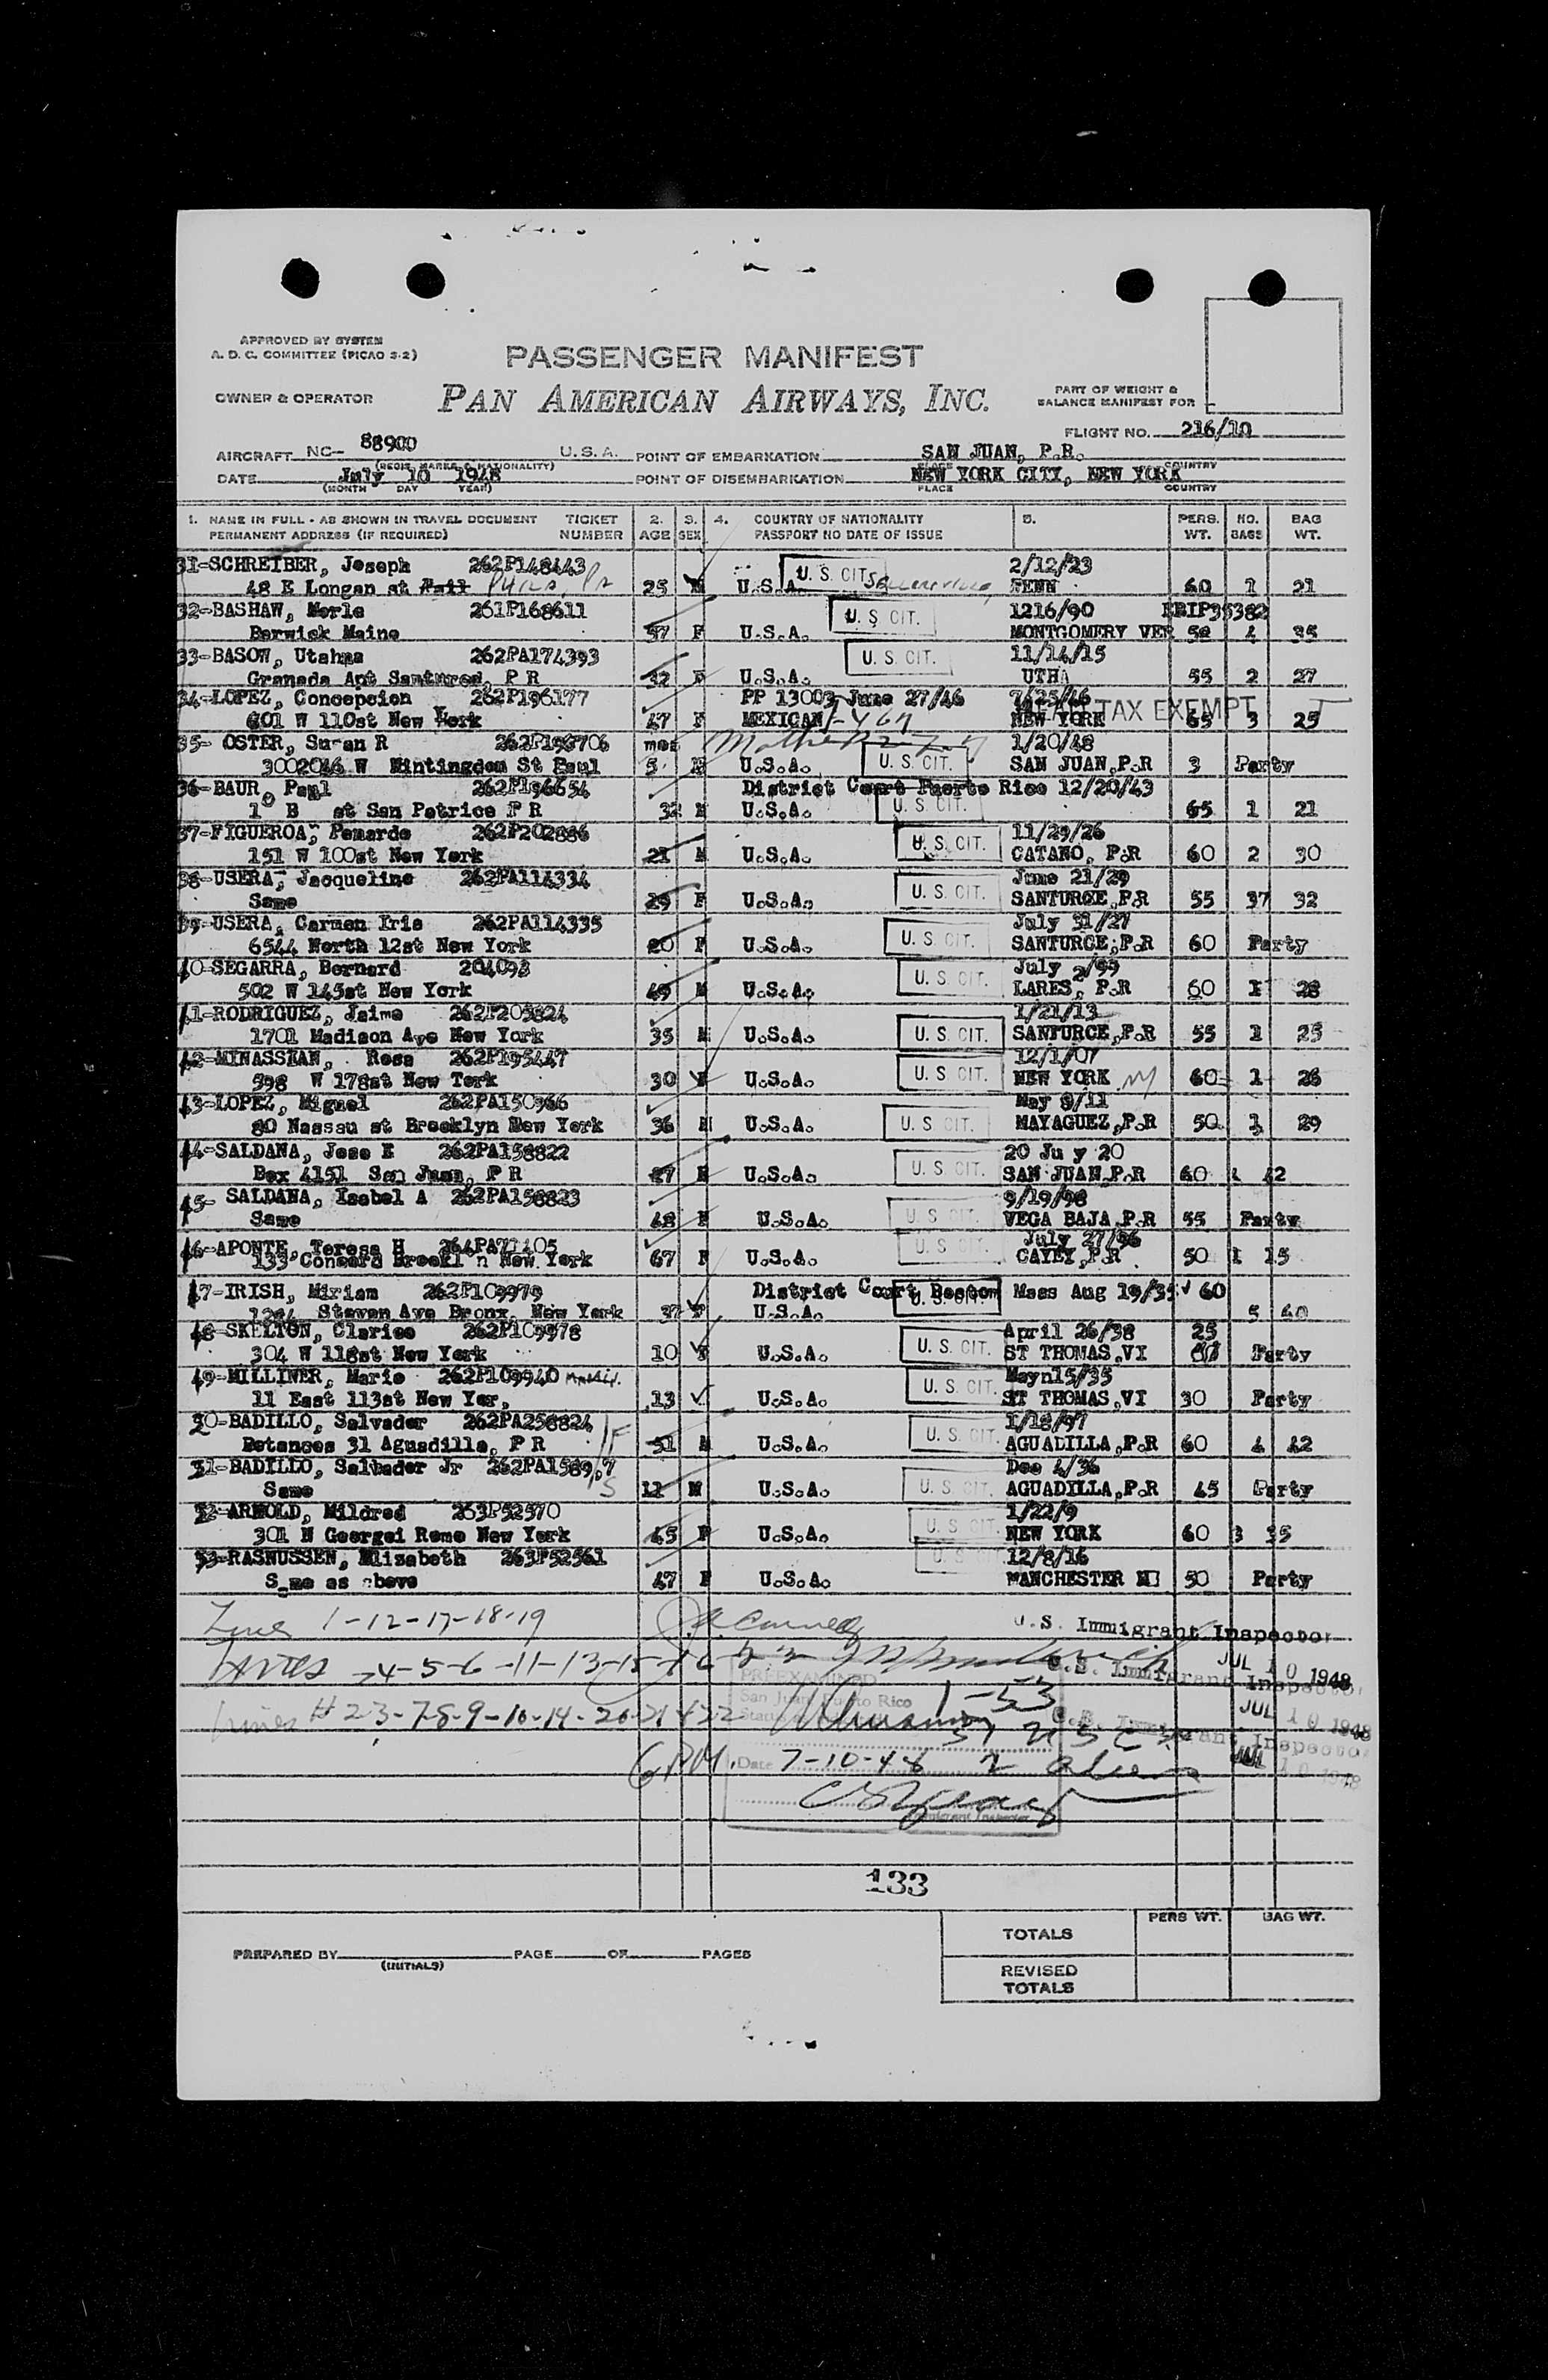 APPROVED BY SYSTEM
A. D. C. COMMITTEE (PICAO S-2)
PASSENGER MANIFEST
OWNER & OPERATOR
PAN AMERICAN AIRWAYS, INC.
PART OF WEIGHT &
BALANCE MANIFEST FOR
FLIGHT NO. 216/10
AIRCRAFT NC- 88900 U.S.A. POINT OF EMBARKATION SAN JUAN, P.R.
(REGIS. MARKS & NATIONALITY) PLACE COUNTRY
DATE July 10 1948 POINT OF DISEMBARKATION NEW YORK CITY, NEW YORK
(MONTH DAY YEAR) PLACE COUNTRY
1. NAME IN FULL - AS SHOWN IN TRAVEL DOCUMENT TICKET 2. 3. 4. COUNTRY OF NATIONALITY 5. PERS. NO. BAG
PERMANENT ADDRESS (IF REQUIRED) NUMBER AGE SEX PASSPORT NO DATE OF ISSUE WT. BAGS WT.
31-SCHREIBER, Joseph 262P148443 U. S. CIT. 2/12/23
48 E Longan at Phila, Pa 25 M U.S.A. PENN 60 1 21
32-BASHAW, Merle 261P168611 U. S. CIT. 1216/90
Berwick Maine 57 F U.S.A. MONTGOMERY VER 50 4 35
33-BASOW, Utahna 262PA174393 U. S. CIT. 11/14/15
Granada Apt Santured, P R 32 F U.S.A. UTHA 55 2 27
34-LOPEZ, Concepcion 262P196177 PP 13003 June 27/46 7/25/46
601 W 110st New York 47 F MEXICAN NEW YORK TAX EXEMPT 65 3 25
35- OSTER, Susan R mos 1/20/48
W Hintingdom St Paul 5 F U.S.A. U. S. CIT. SAN JUAN,P.R 3 Party
36-BAUR, Paul 262P196654 District Court Puerto Rico 12/20/43
B st San Patrice P R 32 M U.S.A. U. S. CIT. 65 1 21
37-FIGUEROA, Penarde 262P202886 11/29/26
151 W 100st New York 21 M U.S.A. U. S. CIT. CATANO, P.R 60 2 30
38-USERA, Jacqueline 262PA114334 June 21/29
Same 29 F U.S.A. U. S. CIT. SANTURCE,P.R 55 37 32
39-USERA, Carmen Iris 262PA114335 July 31/27
6544 North 12st New York 20 F U.S.A. U. S. CIT. SANTURCE,P.R 60 Party
40-SEGARRA, Bernard 204098 July 2/99
502 W 145st New York 49 M U.S.A. U. S. CIT. LARES, P.R 60 1 28
41-RODRIGUEZ, Jaime 262P205824 1/21/13
1701 Madison Ave New York 35 M U.S.A. U. S. CIT. SANTURCE,P.R 55 1 25
42-MINASSIAN, Rosa 262P195447 12/1/07
598 W 178st New Tork 30 F U.S.A. U. S. CIT. NEW YORK NY 60 1 26
43-LOPEZ, Miguel 262PA150966 May 9/11
80 Nassau st Brooklyn New York 36 M U.S.A. U. S. CIT. MAYAGUEZ,P.R 50 1 29
44-SALDANA, Jose E 262PA158822 20 Ju y 20
Box 4151 San Juan, P R 27 M U.S.A. U. S. CIT. SAN JUAN,P.R 60 42
45- SALDANA, Isabel A 262PA158823 9/19/98
Same 48 F U.S.A. U. S. CIT. VEGA BAJA P.R 55 Party
46-APONTE, Teresa H July 27/
133 Concord Brookl n New York 67 F U.S.A. U. S. CIT. CAYEY,P.R 50 1 15
47-IRISH, Miriam 262P109979 District Court Boston Mass Aug 60
Steven Ave Bronx, New York 37 F U.S.A. U. S. CIT. 5 40
48-SKELTON, Clarice 262P109978 April 26/38 25
304 W 118st New York 10 F U.S.A. U. S. CIT. ST THOMAS,VI Party
49-MILLINER, Marie 262P109940 Mayn15/35
11 East 113st New Yor, 13 U.S.A. U. S. CIT. ST THOMAS,VI 30 Party
50-BADILLO, Salvador 262PA258824 1/18/97
Betances 31 Aguadilla, P R 51 M U.S.A. U. S. CIT. AGUADILLA,P.R 60 4 42
51-BADILLO, Salbador Jr Dec 4/36
Same 11 M U.S.A. U. S. CIT. AGUADILLA,P.R 45 Party
52-ARNOLD, Mildred 263P52570 1/22/9
301 N Georgei Rome New York 45 F U.S.A. U. S. CIT. NEW YORK 60 3 35
53-RASMUSSEN, Elizabeth 263P52561 12/8/16
S me as above 47 F U.S.A. U. S. CIT. MANCHESTER 50 Party
Lines 1-12-17-18-19 U.S. Immigrant Inspector
JUL 10 1948
Lines U.S. Immigrant Inspector
PREEXAMINED
San Juan, Puerto Rico 1-53
Lines # 23-7-8-9-10-14-20-21 & 22 JUL 10 1948
U.S. Immigrant Inspector
6 PM. Date 7-10-48 2 aliens JUL 10 1948
Immigrant Inspector
133
PERS WT. BAG WT.
TOTALS
PREPARED BY (INITIALS) PAGE OF PAGES
REVISED
TOTALS